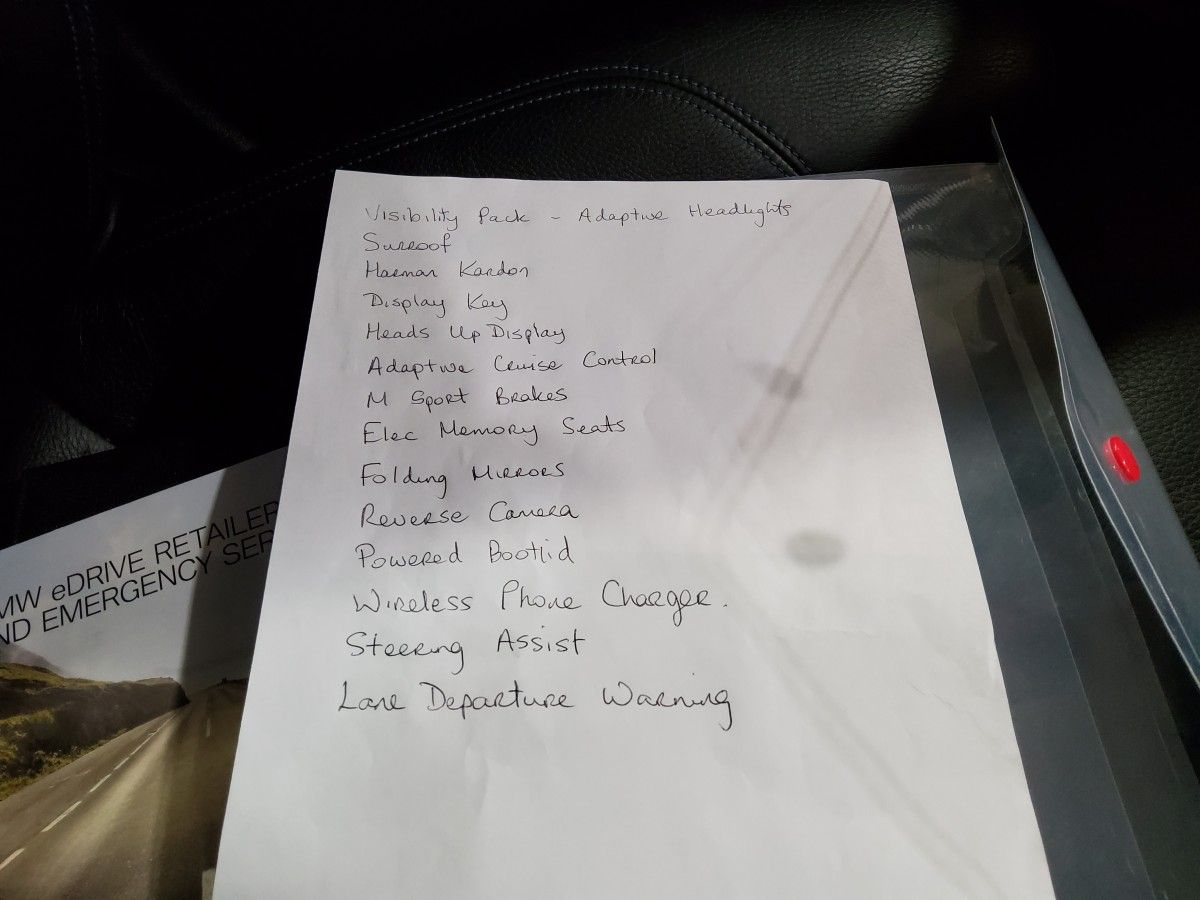 Visibility Pack - Adaptive Headlights
Sunroof
Harman Kardon
Display Key
Heads Up Display
Adaptive Cruise Control
M Sport Brakes
Elec Memory Seats
Folding Mirrors
Reverse Camera
Powered Bootlid
Wireless Phone Charger.
Steering Assist
Lane Departure Warning
MW eDRIVE RETAILER
ND EMERGENCY SER